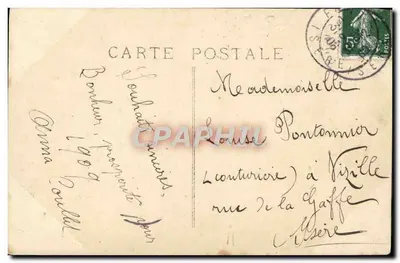 CARTE POSTALE
Souhaits sincères,
Bonheur, prospérité pour
1909
Anna
Mademoiselle
Louise Pontonnier
(couturière) à Vizille
rue de la Gaffe
Isère
5c
POSTES
ISERE